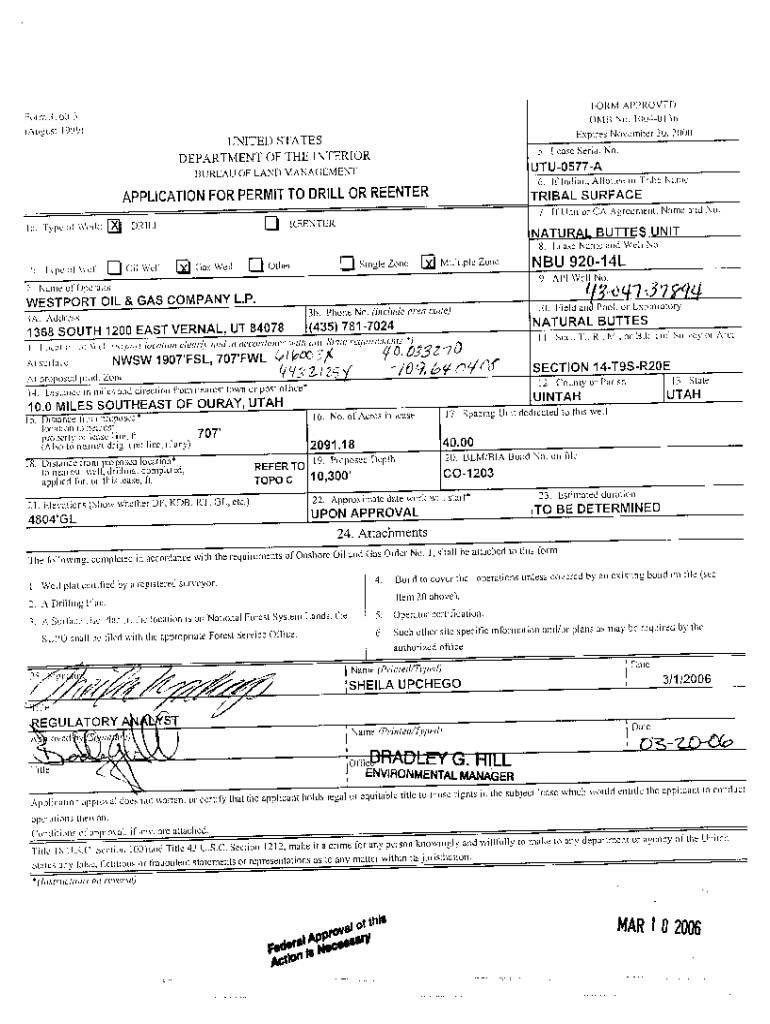 Form 3160-3
(August 1999)
FORM APPROVED
OMB No. 1004-0136
Expires November 30, 2000
UNITED STATES
DEPARTMENT OF THE INTERIOR
BUREAU OF LAND MANAGEMENT
APPLICATION FOR PERMIT TO DRILL OR REENTER
5. Lease Serial No.
UTU-0577-A
6. If Indian, Allottee or Tribe Name
TRIBAL SURFACE
7. If Unit or CA Agreement, Name and No.
NATURAL BUTTES UNIT
1a. Type of Work: X DRILL REENTER
8. Lease Name and Well No.
NBU 920-14L
b. Type of Well: Oil Well X Gas Well Other Single Zone X Multiple Zone
9. API Well No.
43-047-37894
2. Name of Operator
WESTPORT OIL & GAS COMPANY L.P.
3A. Address
1368 SOUTH 1200 EAST VERNAL, UT 84078
3b. Phone No. (include area code)
(435) 781-7024
10. Field and Pool, or Exploratory
NATURAL BUTTES
4. Location of Well (Report location clearly and in accordance with any State requirements.*)
At surface NWSW 1907'FSL, 707'FWL 616003X 40.033270
4432125Y -109.640405
At proposed prod. Zone
11. Sec., T., R., M., or Blk, and Survey or Area
SECTION 14-T9S-R20E
14. Distance in miles and direction from nearest town or post office*
10.0 MILES SOUTHEAST OF OURAY, UTAH
12. County or Parish
UINTAH
13. State
UTAH
15. Distance from proposed*
location to nearest
property or lease line, ft.
(Also to nearest drig. unit line, if any)
707'
16. No. of Acres in lease
2091.18
17. Spacing Unit dedicated to this well
40.00
18. Distance from proposed location*
to nearest well, drilling, completed,
applied for, on this lease, ft.
REFER TO
TOPO C
19. Proposed Depth
10,300'
20. BLM/BIA Bond No. on file
CO-1203
21. Elevations (Show whether DF, KDB, RT, GL, etc.)
4804'GL
22. Approximate date work will start*
UPON APPROVAL
23. Estimated duration
TO BE DETERMINED
24. Attachments
The following, completed in accordance with the requirements of Onshore Oil and Gas Order No. 1, shall be attached to this form
1. Well plat certified by a registered surveyor.
2. A Drilling Plan.
3. A Surface Use Plan (if the location is on National Forest System Lands, the
SUPO shall be filed with the appropriate Forest Service Office.
4. Bond to cover the operations unless covered by an existing bond on file (see
Item 20 above).
5. Operator certification.
6. Such other site specific information and/or plans as may be required by the
authorized office
25. Signature
Name (Printed/Typed)
SHEILA UPCHEGO
Date
3/1/2006
Title
REGULATORY ANALYST
Approved by (Signature)
Name (Printed/Typed)
Date
03-20-06
Title
Office
BRADLEY G. HILL
ENVIRONMENTAL MANAGER
Application approval does not warrant or certify that the applicant holds legal or equitable title to those rights in the subject lease which would entitle the applicant to conduct
operations thereon.
Conditions of approval, if any, are attached.
Title 18 U.S.C. Section 1001and Title 43 U.S.C. Section 1212, make it a crime for any person knowingly and willfully to make to any department or agency of the United
States any false, fictitious or fraudulent statements or representations as to any matter within its jurisdiction.
*(Instructions on reverse)
Federal Approval of this
Action is Necessary
MAR 10 2006